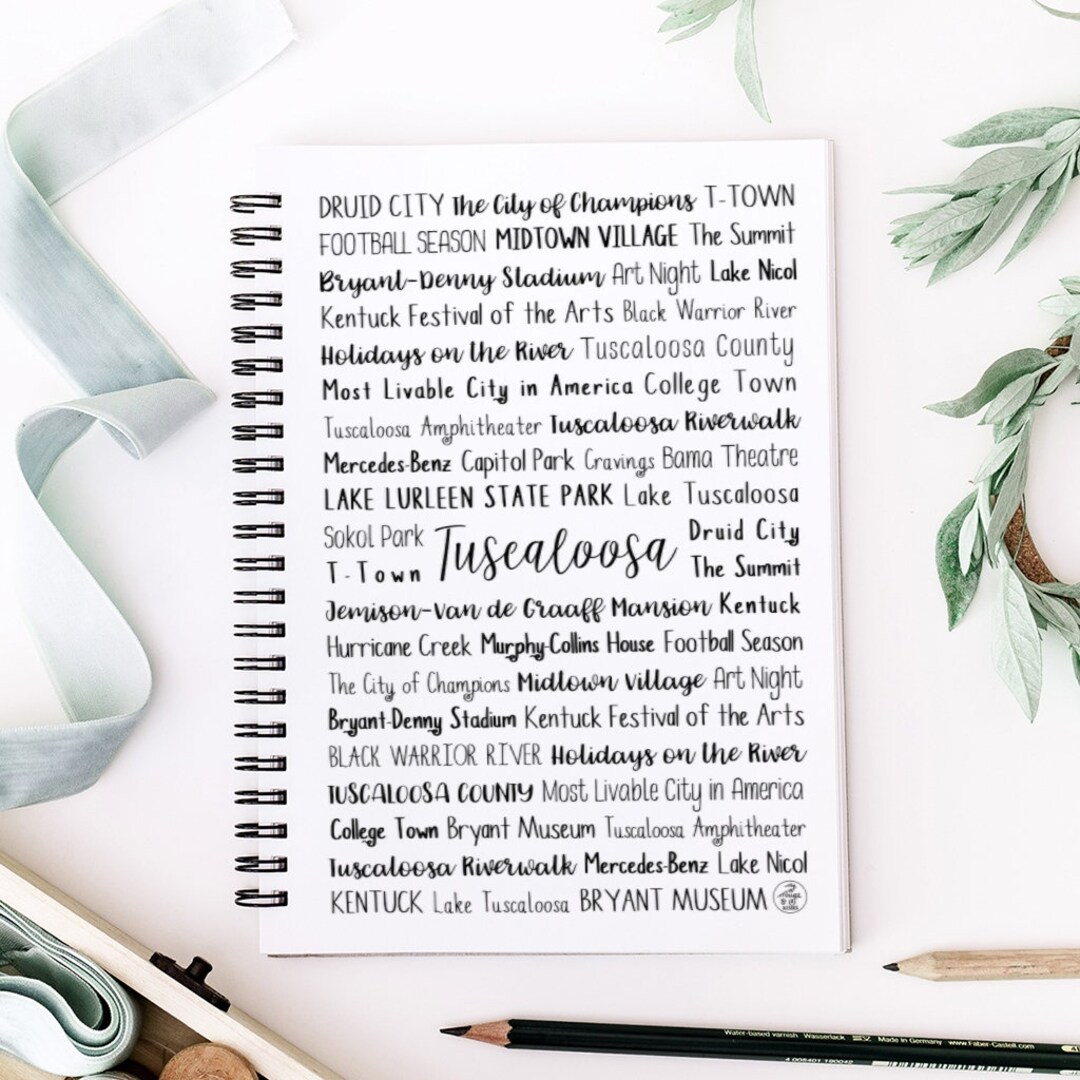 DRUID CITY The City of Champions T-TOWN
FOOTBALL SEASON MIDTOWN VILLAGE The Summit
Bryant-Denny Stadium Art Night Lake Nicol
Kentuck Festival of the Arts Black Warrior River
Holidays on the River Tuscaloosa County
Most Livable City in America College Town
Tuscaloosa Amphitheater Tuscaloosa Riverwalk
Mercedes-Benz Capitol Park Cravings Bama Theatre
LAKE LURLEEN STATE PARK Lake Tuscaloosa
Sokol Park
T-Town
Tuscaloosa
Druid City
The Summit
Jemison-Van de Graaff Mansion Kentuck
Hurricane Creek Murphy-Collins House Football Season
The City of Champions Midtown Village Art Night
Bryant-Denny Stadium Kentuck Festival of the Arts
BLACK WARRIOR RIVER Holidays on the River
TUSCALOOSA COUNTY Most Livable City in America
College Town Bryant Museum Tuscaloosa Amphitheater
Tuscaloosa Riverwalk Mercedes-Benz Lake Nicol
KENTUCK Lake Tuscaloosa BRYANT MUSEUM
Water-based varnish Wasserlack Made in Germany www.Faber-Castell.com
4 005401 190042